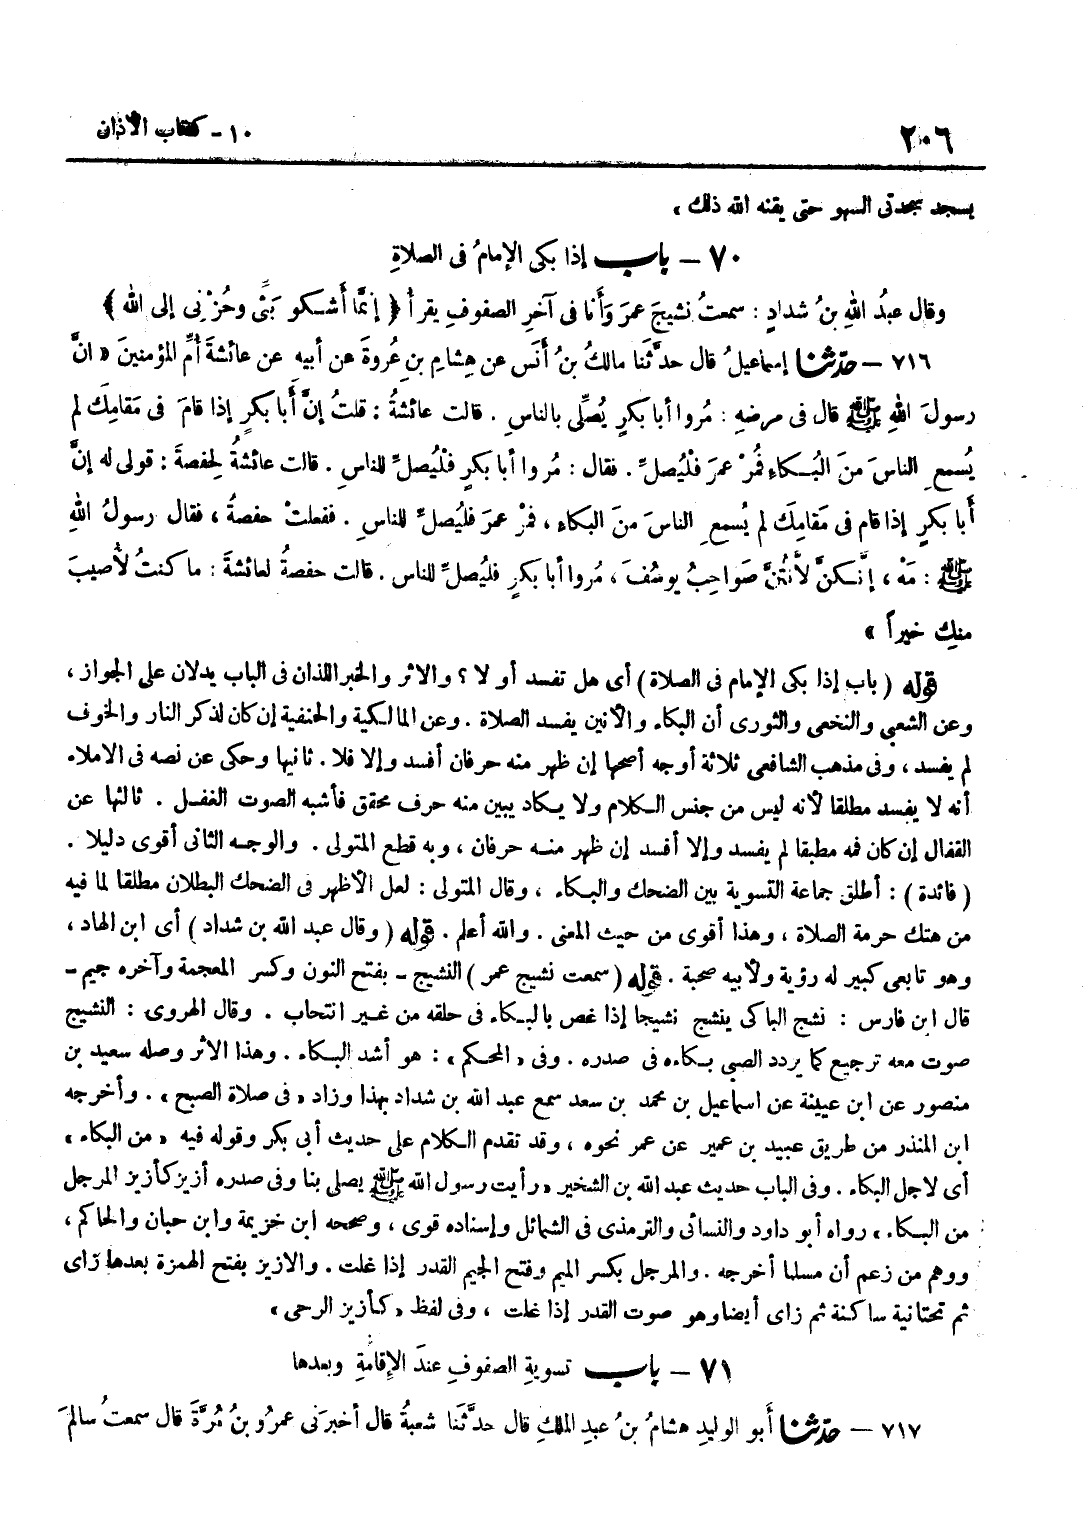 ٢٠٦
١٠ - كتاب الأذان
يسجد سجدتى السهو حتى يقنه الله ذلك ،
٧٠ - باب إذا بكى الإمامُ فى الصلاةِ
وقال عبدُ اللهِ بنُ شدادٍ : سمعتُ نشيجَ عمرَ وَأنا فى آخرِ الصفوفِ يقرأ ﴿ إنَّما أَشـكو بَثِّى وحُزْنِى إلى اللهِ ﴾
٧١٦ - حدّثنا إسماعيلُ قال حدَّثَنا مالكُ بنُ أنَس عن هِشامِ بنِ عُروةَ عن أبيه عن عائشةَ أُمِّ المؤمنينَ « انَّ
رسولَ اللهِ ﷺ قال فى مرضهِ : مُروا أبا بكرٍ يُصلِّى بالناسِ . قالت عائشةُ : قلتُ إنَّ أبا بكرٍ إذا قامَ فى مَقامِك لم
يُسمعِ الناسَ منَ البُـكاءِ فمُرْ عمرَ فلْيُصلِّ . فقال : مُروا أبا بكرٍ فلْيُصلِّ للناسِ . قالت عائشةُ لحفصةَ : قولى له إنَّ
أبا بكرٍ إذا قام فى مَقامِك لم يُسمعِ الناسَ منَ البكاءِ ، فمُرْ عمرَ فليُصلِّ للناسِ . ففعلتْ حفصةُ ، فقال رسولُ اللهِ
ﷺ : مَهْ ، إنَّـكنَّ لأنتُنَّ صَواحِبُ يوسُفَ ، مُروا أبا بكرٍ فليُصلِّ للناس . قالت حفصةُ لعائشةَ : ما كنتُ لأصيبَ
منكِ خيراً »
قوله ( باب إذا بكى الإمام فى الصلاة ) أى هل تفسد أو لا ؟ والاثر والخبر اللذان فى الباب يدلان على الجواز ،
وعن الشعبي والنخعى والثورى أن البكاء والأنين يفسد الصلاة . وعن المالكية والحنفية إن كان لذكر النار والخوف
لم يفسد ، وفى مذهب الشافعى ثلاثة أوجه أصحها إن ظهر منه حرفان أفسد وإلا فلا . ثانيها وحكى عن نصه فى الاملاء
أنه لا يفسد مطلقا لأنه ليس من جنس الـكلام ولا يـكاد يبين منه حرف محقق فأشبه الصوت الغفـل . ثالثها عن
القفال إن كان فمه مطبقا لم يفسد وإلا أفسد إن ظهر منـه حرفان ، وبه قطع المتولى . والوجـه الثانى أقوى دليلا .
( فائدة ) : أطلق جماعة التسوية بين الضحك والبـكاء ، وقال المتولى : لعل الأظهر فى الضحك البطلان مطلقا لما فيه
من هتك حرمة الصلاة ، وهذا أقوى من حيث المعنى . والله أعلم . قوله ( وقال عبد الله بن شداد ) أى ابن الهاد ،
وهو تابعى كبير له رؤية ولأبيه صحبة . قوله ( سمعت نشيج عمر ) النشيج - بفتح النون وكسر المعجمة وآخره جيم -
قال ابن فارس : نشج الباكى ينشج نشيجا إذا غص بالبـكاء فى حلقه من غـير انتحاب . وقال الهروى : النشيج
صوت معه ترجيع كما يردد الصبى بـكاءه فى صدره . وفى « المحكم » : هو أشد البـكاء . وهذا الاثر وصله سعيد بن
منصور عن ابن عيينة عن اسماعيل بن محمد بن سعد سمع عبد الله بن شداد بهذا وزاد « فى صلاة الصبح » . وأخرجه
ابن المنذر من طريق عبيد بن عمير عن عمر نحوه ، وقد تقدم الـكلام على حديث أبى بكر وقوله فيه « من البكاء »
أى لاجل البكاء . وفى الباب حديث عبد الله بن الشخير « رأيت رسول الله ﷺ يصلى بنا وفى صدره أزيز كأزيز المرجل
من البـكاء » رواه أبو داود والنسائى والترمذى فى الشمائل وإسناده قوى ، وصححه ابن خزيمة وابن حبان والحاكم ،
ووهم من زعم أن مسلما أخرجه . والمرجل بكسر الميم وفتح الجيم القدر إذا غلت . والازيز بفتح الهمزة بعدها زاى
ثم تحتانية ساكنة ثم زاى أيضا وهو صوت القدر إذا غلت ، وفى لفظ « كـأزيز الرحى »
٧١ - باب تسويةِ الصفوفِ عندَ الإقامةِ وبعدها
٧١٧ - حدّثنا أبو الوليدِ هشامُ بنُ عبدِ الملكِ قال حدَّثَنا شعبةُ قال أخبرَنى عمرُو بنُ مُرَّةَ قال سمعتُ سالمَ